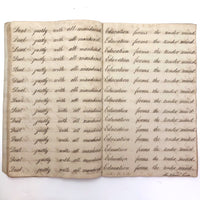 Deal justly with all mankind
Deal justly with all mankind
Deal justly with all mankind
Deal justly with all mankind
Deal justly with all mankind
Deal justly with all mankind
Deal justly with all mankind
Deal justly with all mankind
Deal justly with all mankind
Deal justly with all mankind
Deal justly with all mankind
Deal justly with all mankind
Deal justly with all mankind
Education forms the tender mind.
Education forms the tender mind.
Education forms the tender mind.
Education forms the tender mind.
Education forms the tender mind.
Education forms the tender mind.
Education forms the tender mind.
Education forms the tender mind.
Education forms the tender mind.
Education forms the tender mind.
Education forms the tender mind.
Education forms the tender mind.
Education forms the tender mind.